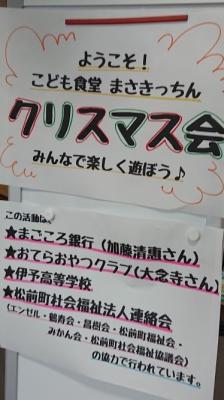 ようこそ！
こども食堂 まさきっちん
クリスマス会
みんなで楽しく遊ぼう♪
この活動は、
★まごころ銀行（加藤清惠さん）
★おてらおやつクラブ（大念寺さん）
★伊予高等学校
★松前町社会福祉法人連絡会
（エンゼル・鶴寿会・昌樹会・松前町福祉会・
みかん会・松前町社会福祉協議会）
の協力で行われています。